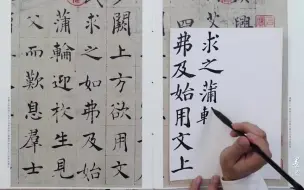 闕上方欲用文
求之如弗及始
蒲輪迎枚生見
父而歎息群士
蒲
求之
弗及始用文上